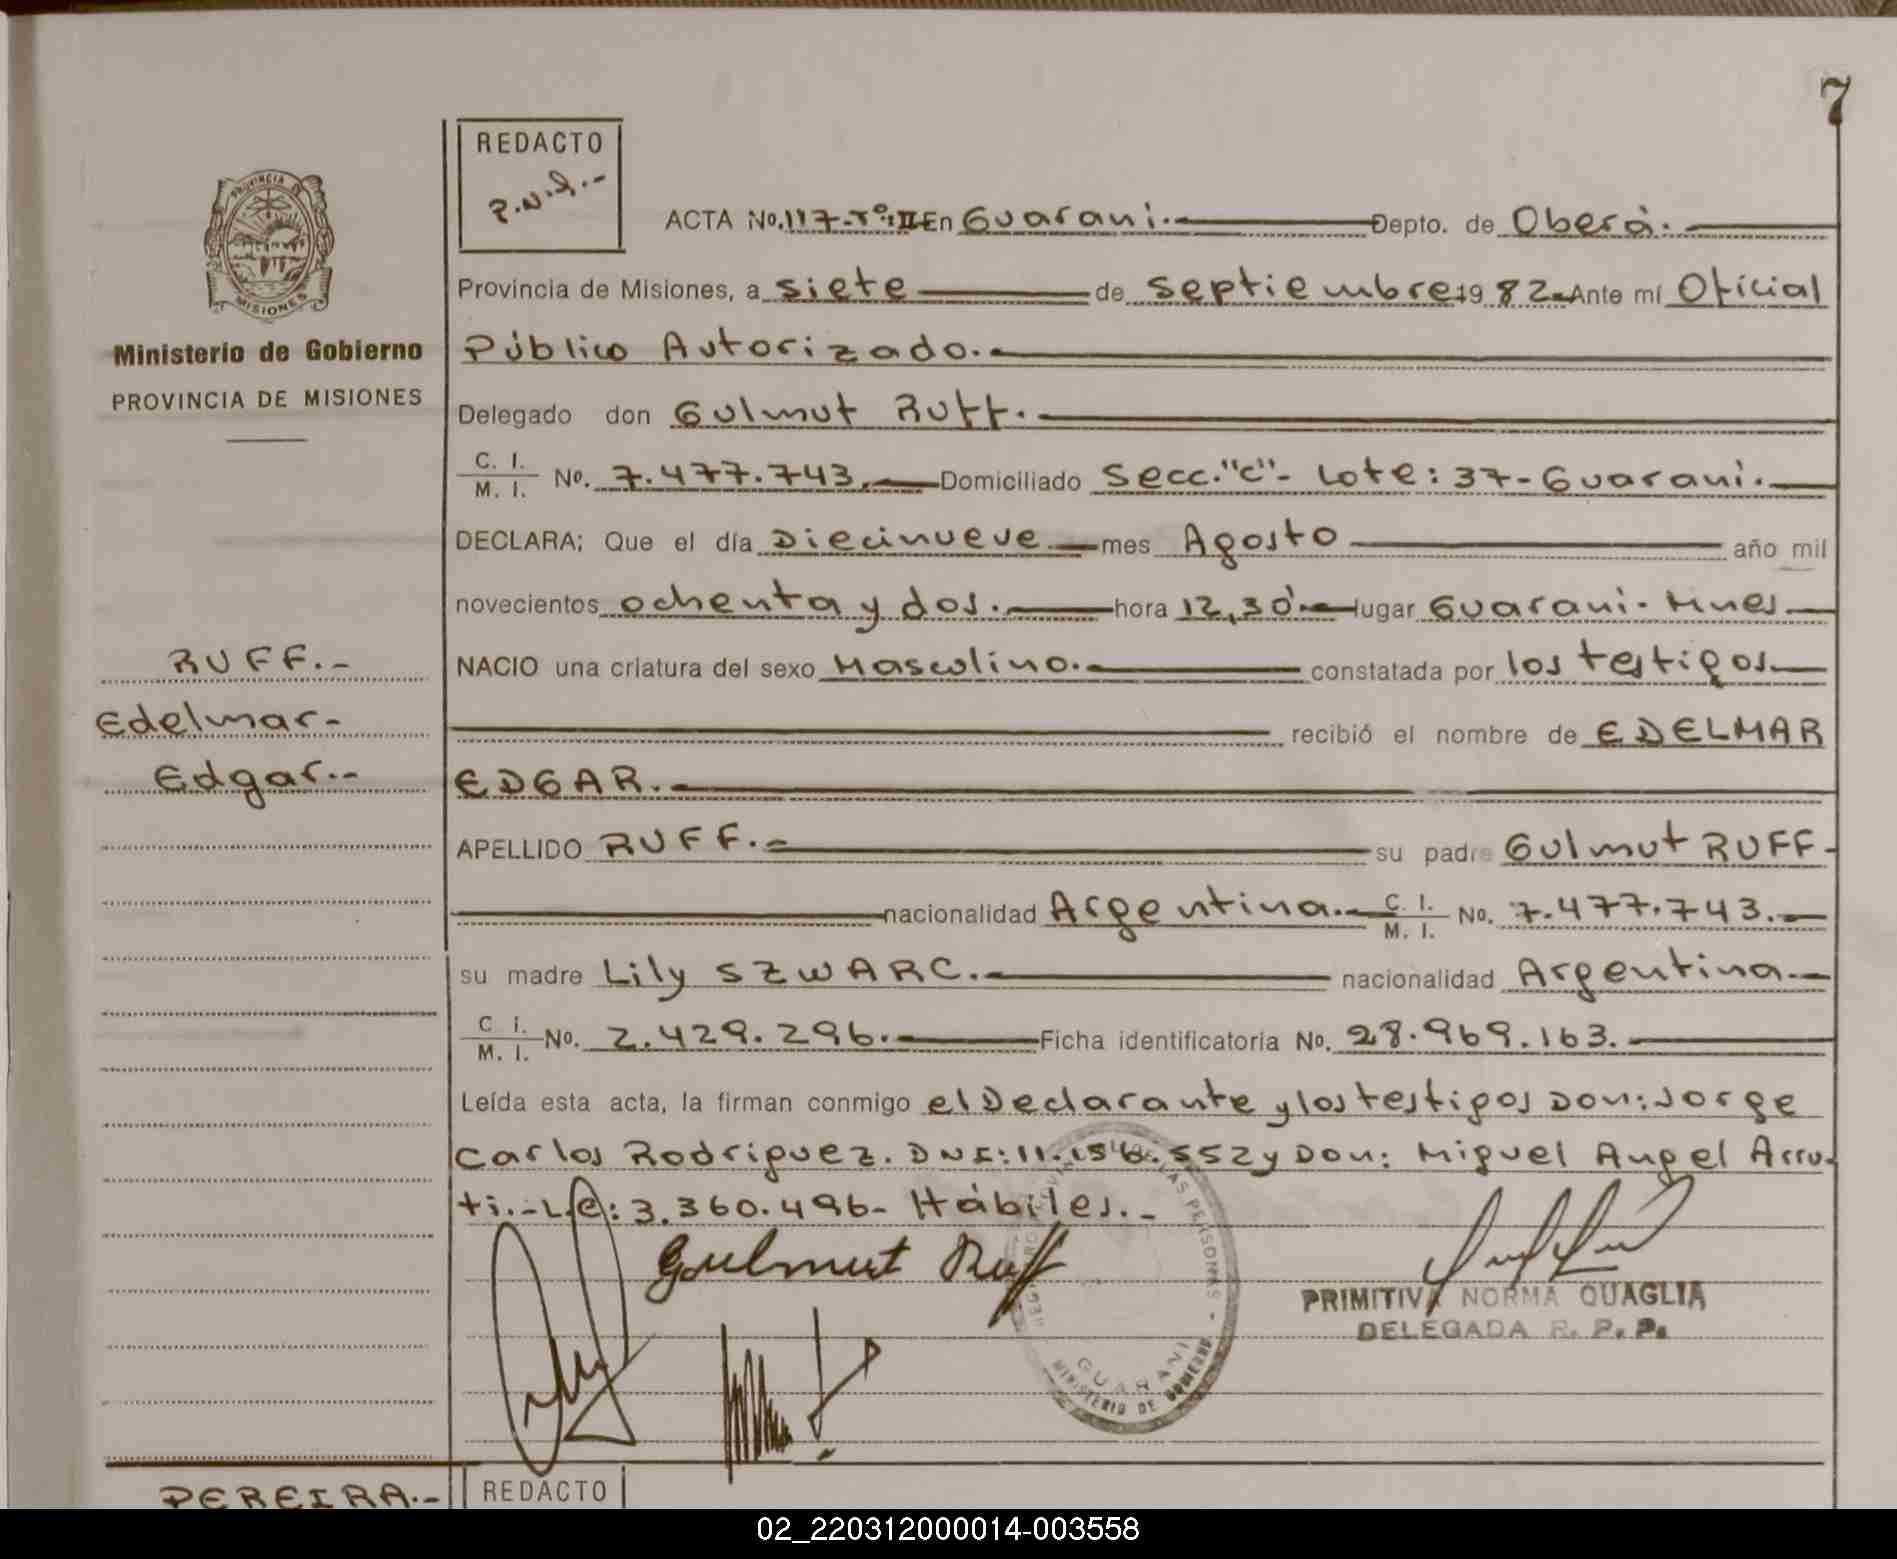 7
REDACTO
P.N.Q.-
PROVINCIA DE
MISIONES
Ministerio de Gobierno
PROVINCIA DE MISIONES
ACTA No. 117-Tº:II En Guarani.- Depto. de Oberá.-
Provincia de Misiones, a siete de septiembre 1982.- Ante mí Oficial
Público Autorizado.-
Delegado don Gulmut Ruff.-
C. I.
M. I. No. 7.477.743.- Domiciliado Secc."C"- Lote: 37-Guarani.-
DECLARA; Que el día Diecinueve mes Agosto año mil
novecientos ochenta y dos.- hora 12,30'.- lugar Guarani- Mnes
NACIO una criatura del sexo Masculino.- constatada por los testigos
recibió el nombre de EDELMAR
EDGAR.-
RUFF.-
Edelmar-
Edgar.-
APELLIDO RUFF.- su padre Gulmut RUFF-
nacionalidad Argentina.- C. I.
M. I. No. 7.477.743.-
su madre Lily SZWARC.- nacionalidad Argentina.-
C I.
M. I. No. 2.429.296.- Ficha identificatoria No. 28.969.163.-
Leída esta acta, la firman conmigo el Declarante y los testigos Don: Jorge
Carlos Rodriguez. DNI: 11.156.552 y Don: Miguel Angel Arru-
ti.-L.E: 3.360.496- Hábiles.-
Gulmut Ruff
LAS PERSONAS
GUARANI
MINISTERIO DE GOBIERNO
PRIMITIVA NORMA QUAGLIA
DELEGADA R. P. P.
PEREIRA.-
REDACTO
02_220312000014-003558